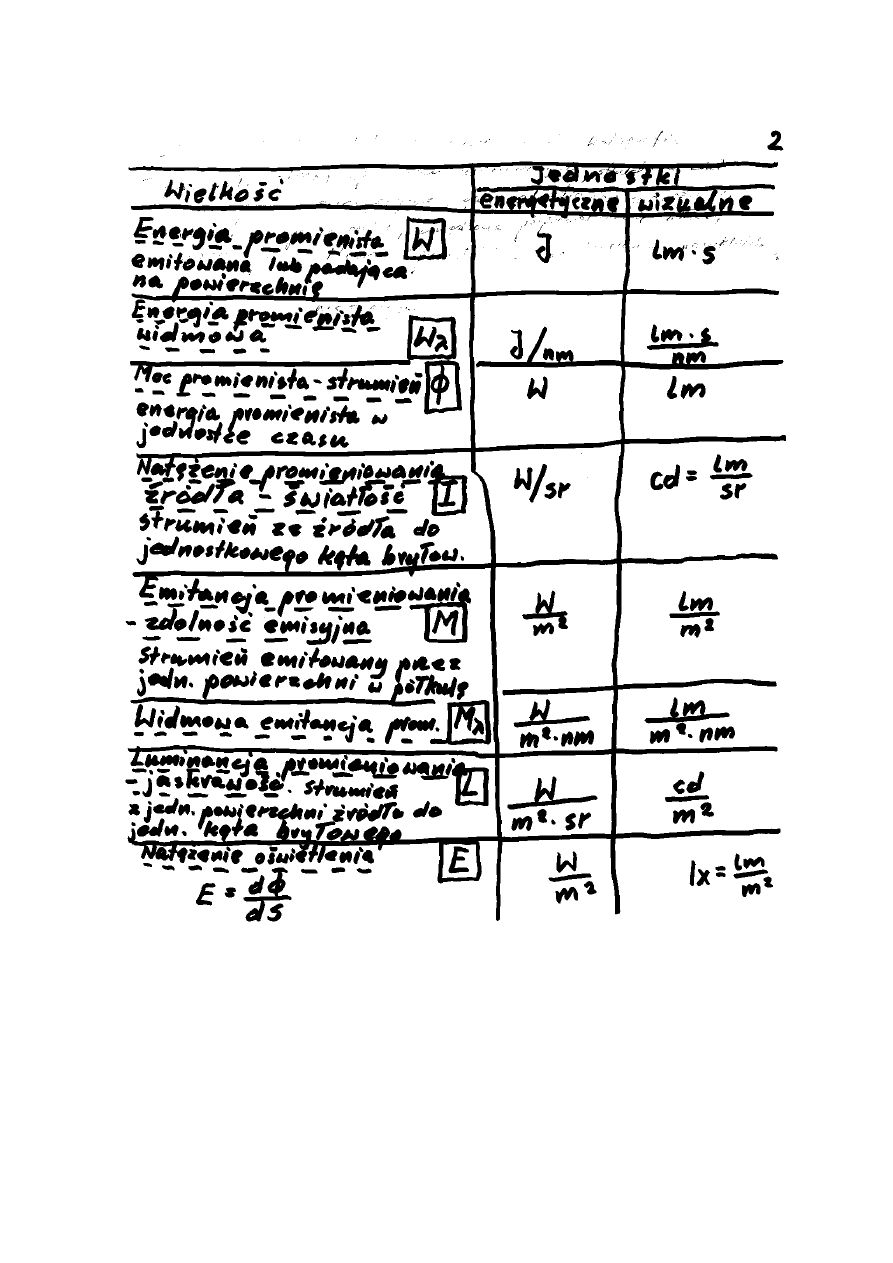 2
Wielkość
Jednostki
energetyczne wizualne
Energia promienista W J lm · s
emitowana lub padająca
na powierzchnię
Energia promienista
widmowa Wλ J/nm lm · s / nm
Moc promienista - strumień ϕ W lm
energia promienista w
jednostce czasu
Natężenie promieniowania
źródła - światłość I W/sr cd = lm/sr
strumień ze źródła do
jednostkowego kąta bryłow.
Emitancja promieniowania
- zdolność emisyjna M W/m² lm/m²
strumień emitowany przez
jedn. powierzchni w półkulę
Widmowa emitancja prom. Mλ W/m²·nm lm/m²·nm
Luminancja promieniowania
- jaskrawość. strumień L W/m²·sr cd/m²
z jedn. powierzchni źródła do
jedn. kąta bryłowego
Natężenie oświetlenia E W/m² lx = lm/m²
E = dϕ/dS